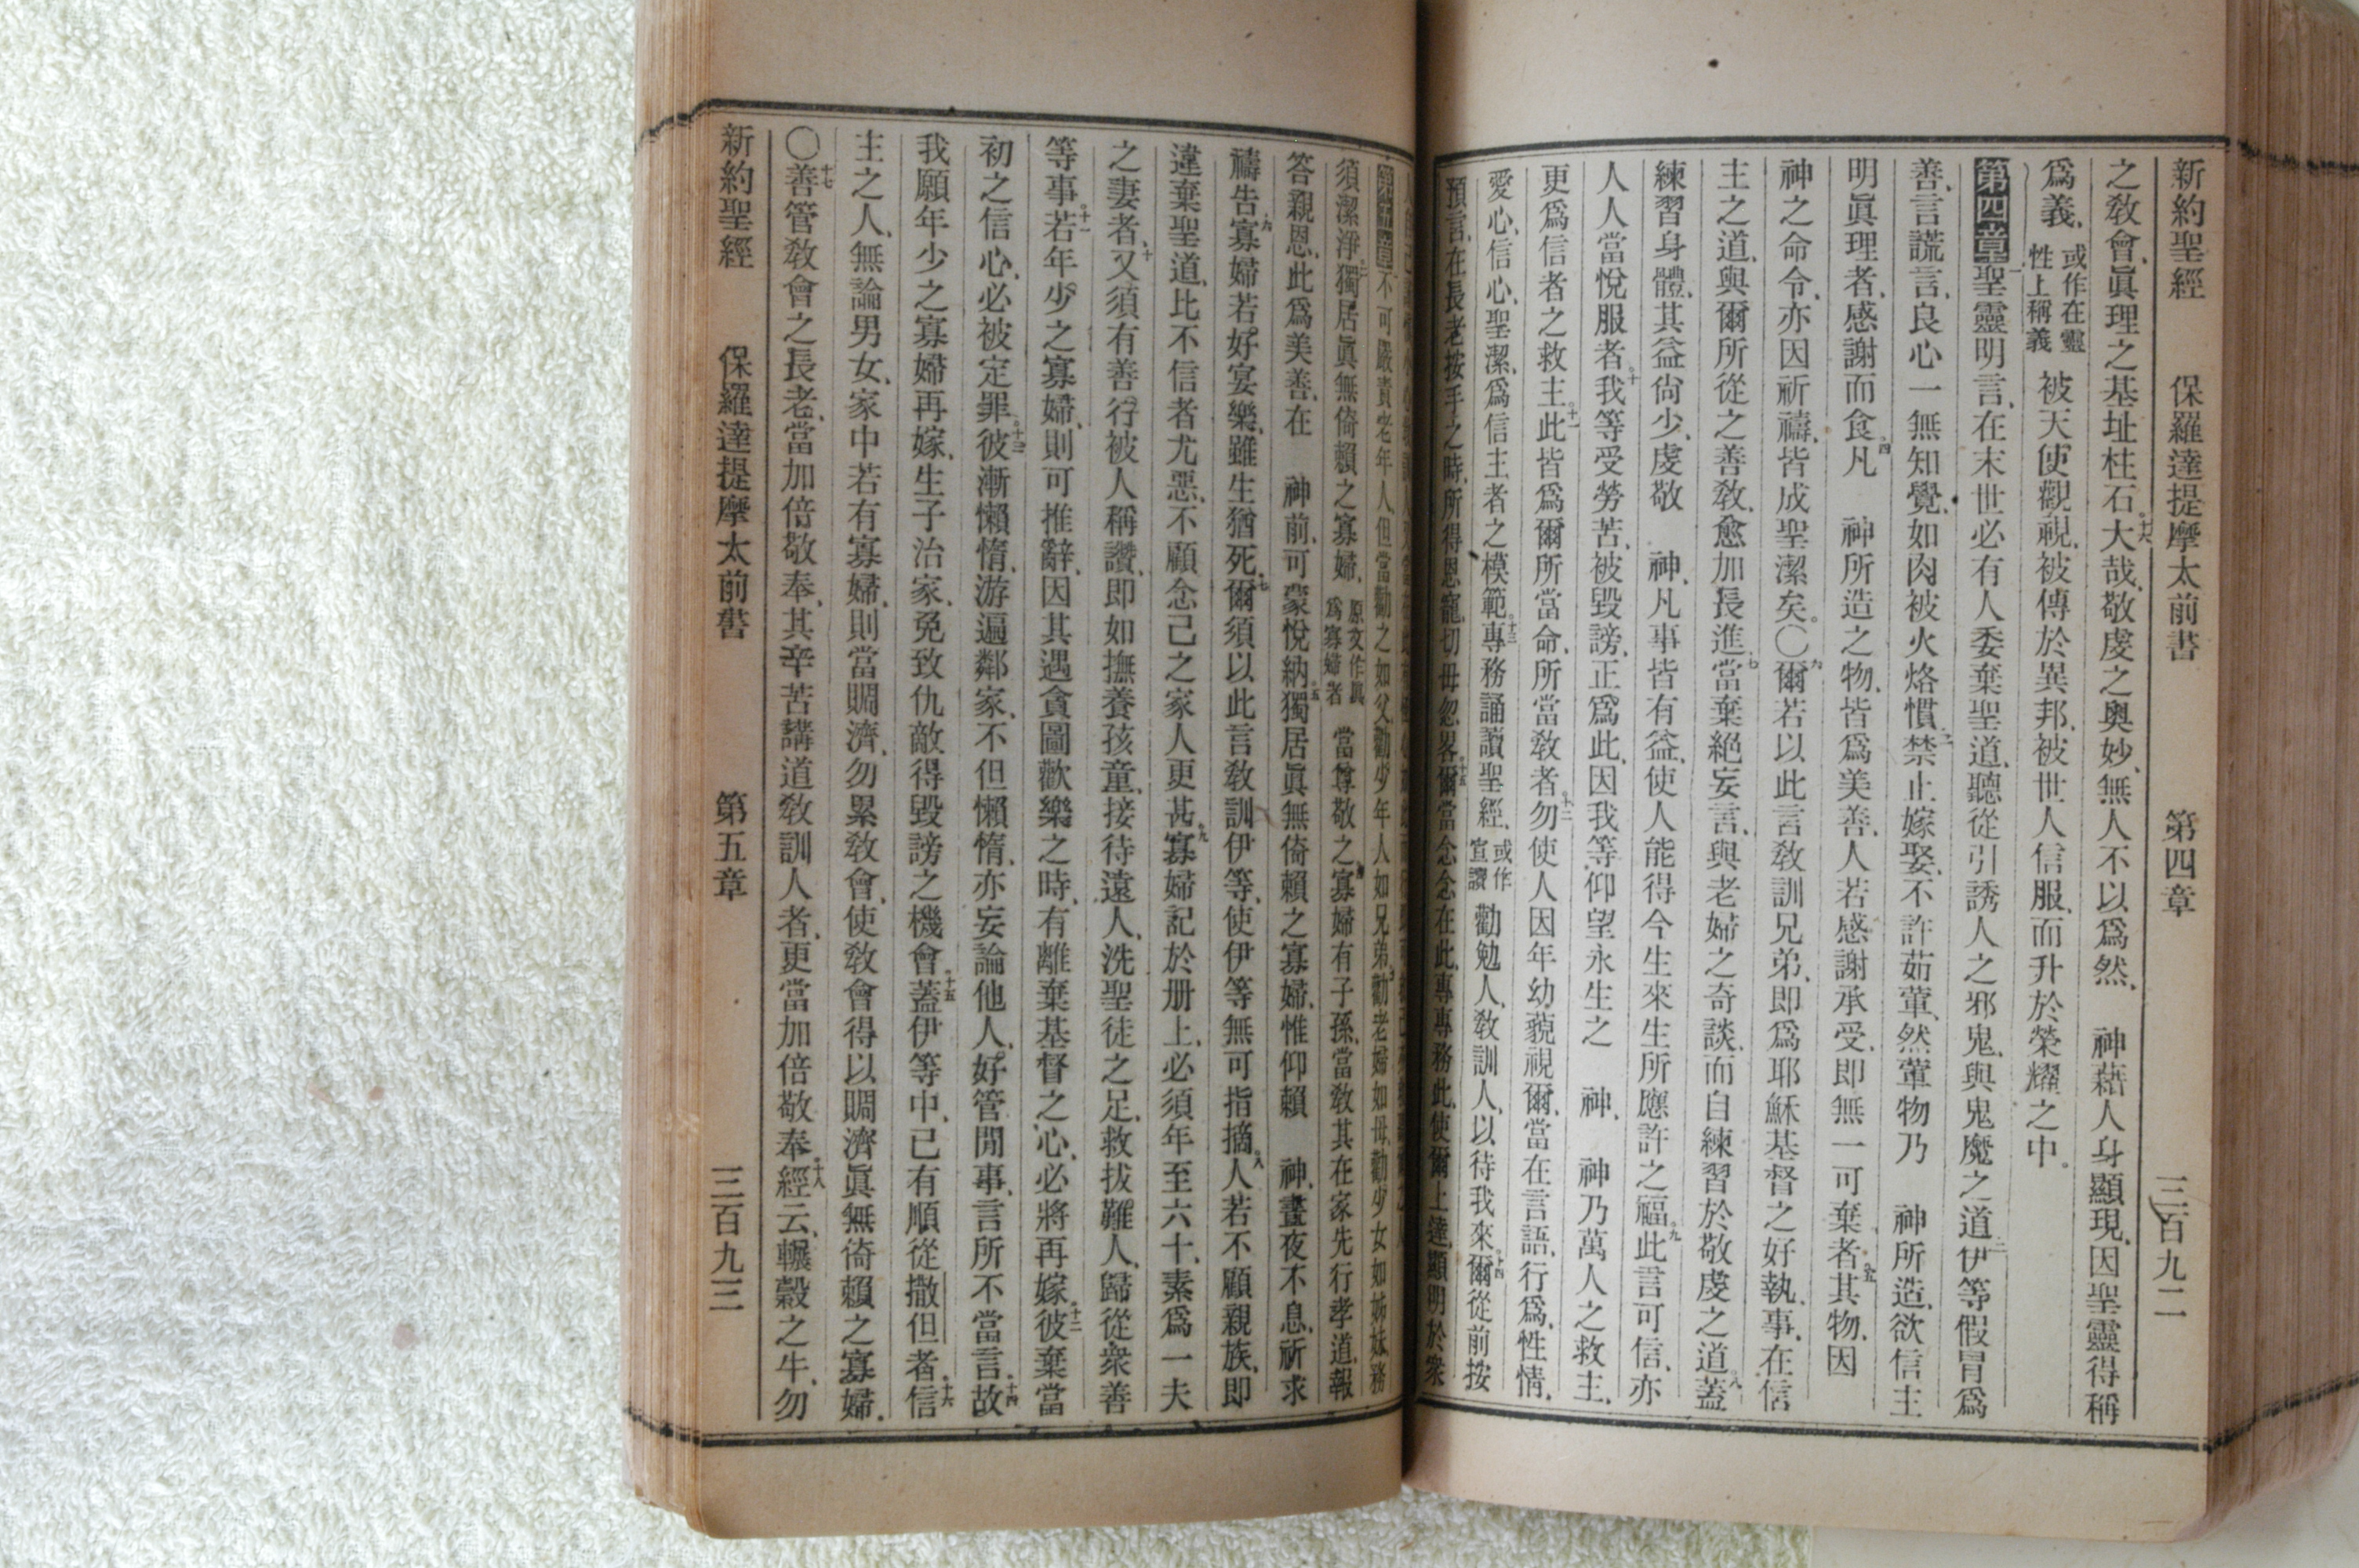 新約聖經 保羅達提摩太前書 第四章 三百九二
之敎會、眞理之基址柱石。十六大哉、敬虔之奧妙、無人不以爲然、 神藉人身顯現、因聖靈得稱
爲義、或作在靈性上稱義 被天使觀視、被傳於異邦、被世人信服、而升於榮耀之中。
第四章 一聖靈明言、在末世必有人委棄聖道、聽從引誘人之邪鬼、與鬼魔之道、二伊等假冒爲
善、言謊言、良心一無知覺、如肉被火烙慣、三禁止嫁娶、不許茹葷、然葷物乃 神所造、欲信主
明眞理者、感謝而食。四凡 神所造之物、皆爲美善、人若感謝承受、即無一可棄者。五其物、因
神之命令、亦因祈禱、皆成聖潔矣。〇六爾若以此言敎訓兄弟、即爲耶穌基督之好執事、在信
主之道、與爾所從之善敎、愈加長進、七當棄絕妄言、與老婦之奇談、而自練習於敬虔之道、八蓋
練習身體、其益尙少、虔敬 神、凡事皆有益、使人能得今生來生所應許之福。九此言可信、亦
人人當悅服者。十我等受勞苦、被毀謗、正爲此、因我等仰望永生之 神、 神乃萬人之救主、
更爲信者之救主。十一此皆爲爾所當命、所當敎者、十二勿使人因年幼藐視爾、當在言語、行爲、性情、
愛心、信心、聖潔、爲信主者之模範。十三專務誦讀聖經、或作宣讀 勸勉人、敎訓人、以待我來。十四爾從前按
預言、在長老按手之時、所得恩寵、切毋忽畧。十五爾當念念在此、專專務此、使爾上達、顯明於衆
第五章 不可嚴責老年人、但當勸之如父、勸少年人如兄弟、二勸老婦如母、勸少女如姊妹、務
須潔淨。三獨居眞無倚賴之寡婦、原文作眞爲寡婦者 當尊敬之。四寡婦有子孫、當敎其在家先行孝道、報
答親恩、此爲美善、在 神前、可蒙悅納。五獨居眞無倚賴之寡婦、惟仰賴 神、晝夜不息、祈求
禱告。六寡婦若好宴樂、雖生猶死。七爾須以此言敎訓伊等、使伊等無可指摘。八人若不顧親族、即
違棄聖道、比不信者尤惡、不顧念己之家人更甚。九寡婦記於册上、必須年至六十、素爲一夫
之妻者、十又須有善行、被人稱讚、即如撫養孩童、接待遠人、洗聖徒之足、救拔難人、歸從衆善
等事。十一若年少之寡婦、則可推辭、因其遇貪圖歡樂之時、有離棄基督之心、必將再嫁。十二彼棄當
初之信心、必被定罪。十三彼漸懶惰、游遍鄰家、不但懶惰、亦妄論他人、好管閒事、言所不當言。十四故
我願年少之寡婦再嫁、生子治家、免致仇敵得毀謗之機會。十五蓋伊等中、已有順從撒但者。十六信
主之人、無論男女、家中若有寡婦、則當賙濟、勿累敎會、使敎會得以賙濟眞無倚賴之寡婦。
〇十七善管敎會之長老、當加倍敬奉、其辛苦講道敎訓人者、更當加倍敬奉。十八經云、輾穀之牛、勿
新約聖經 保羅達提摩太前書 第五章 三百九三